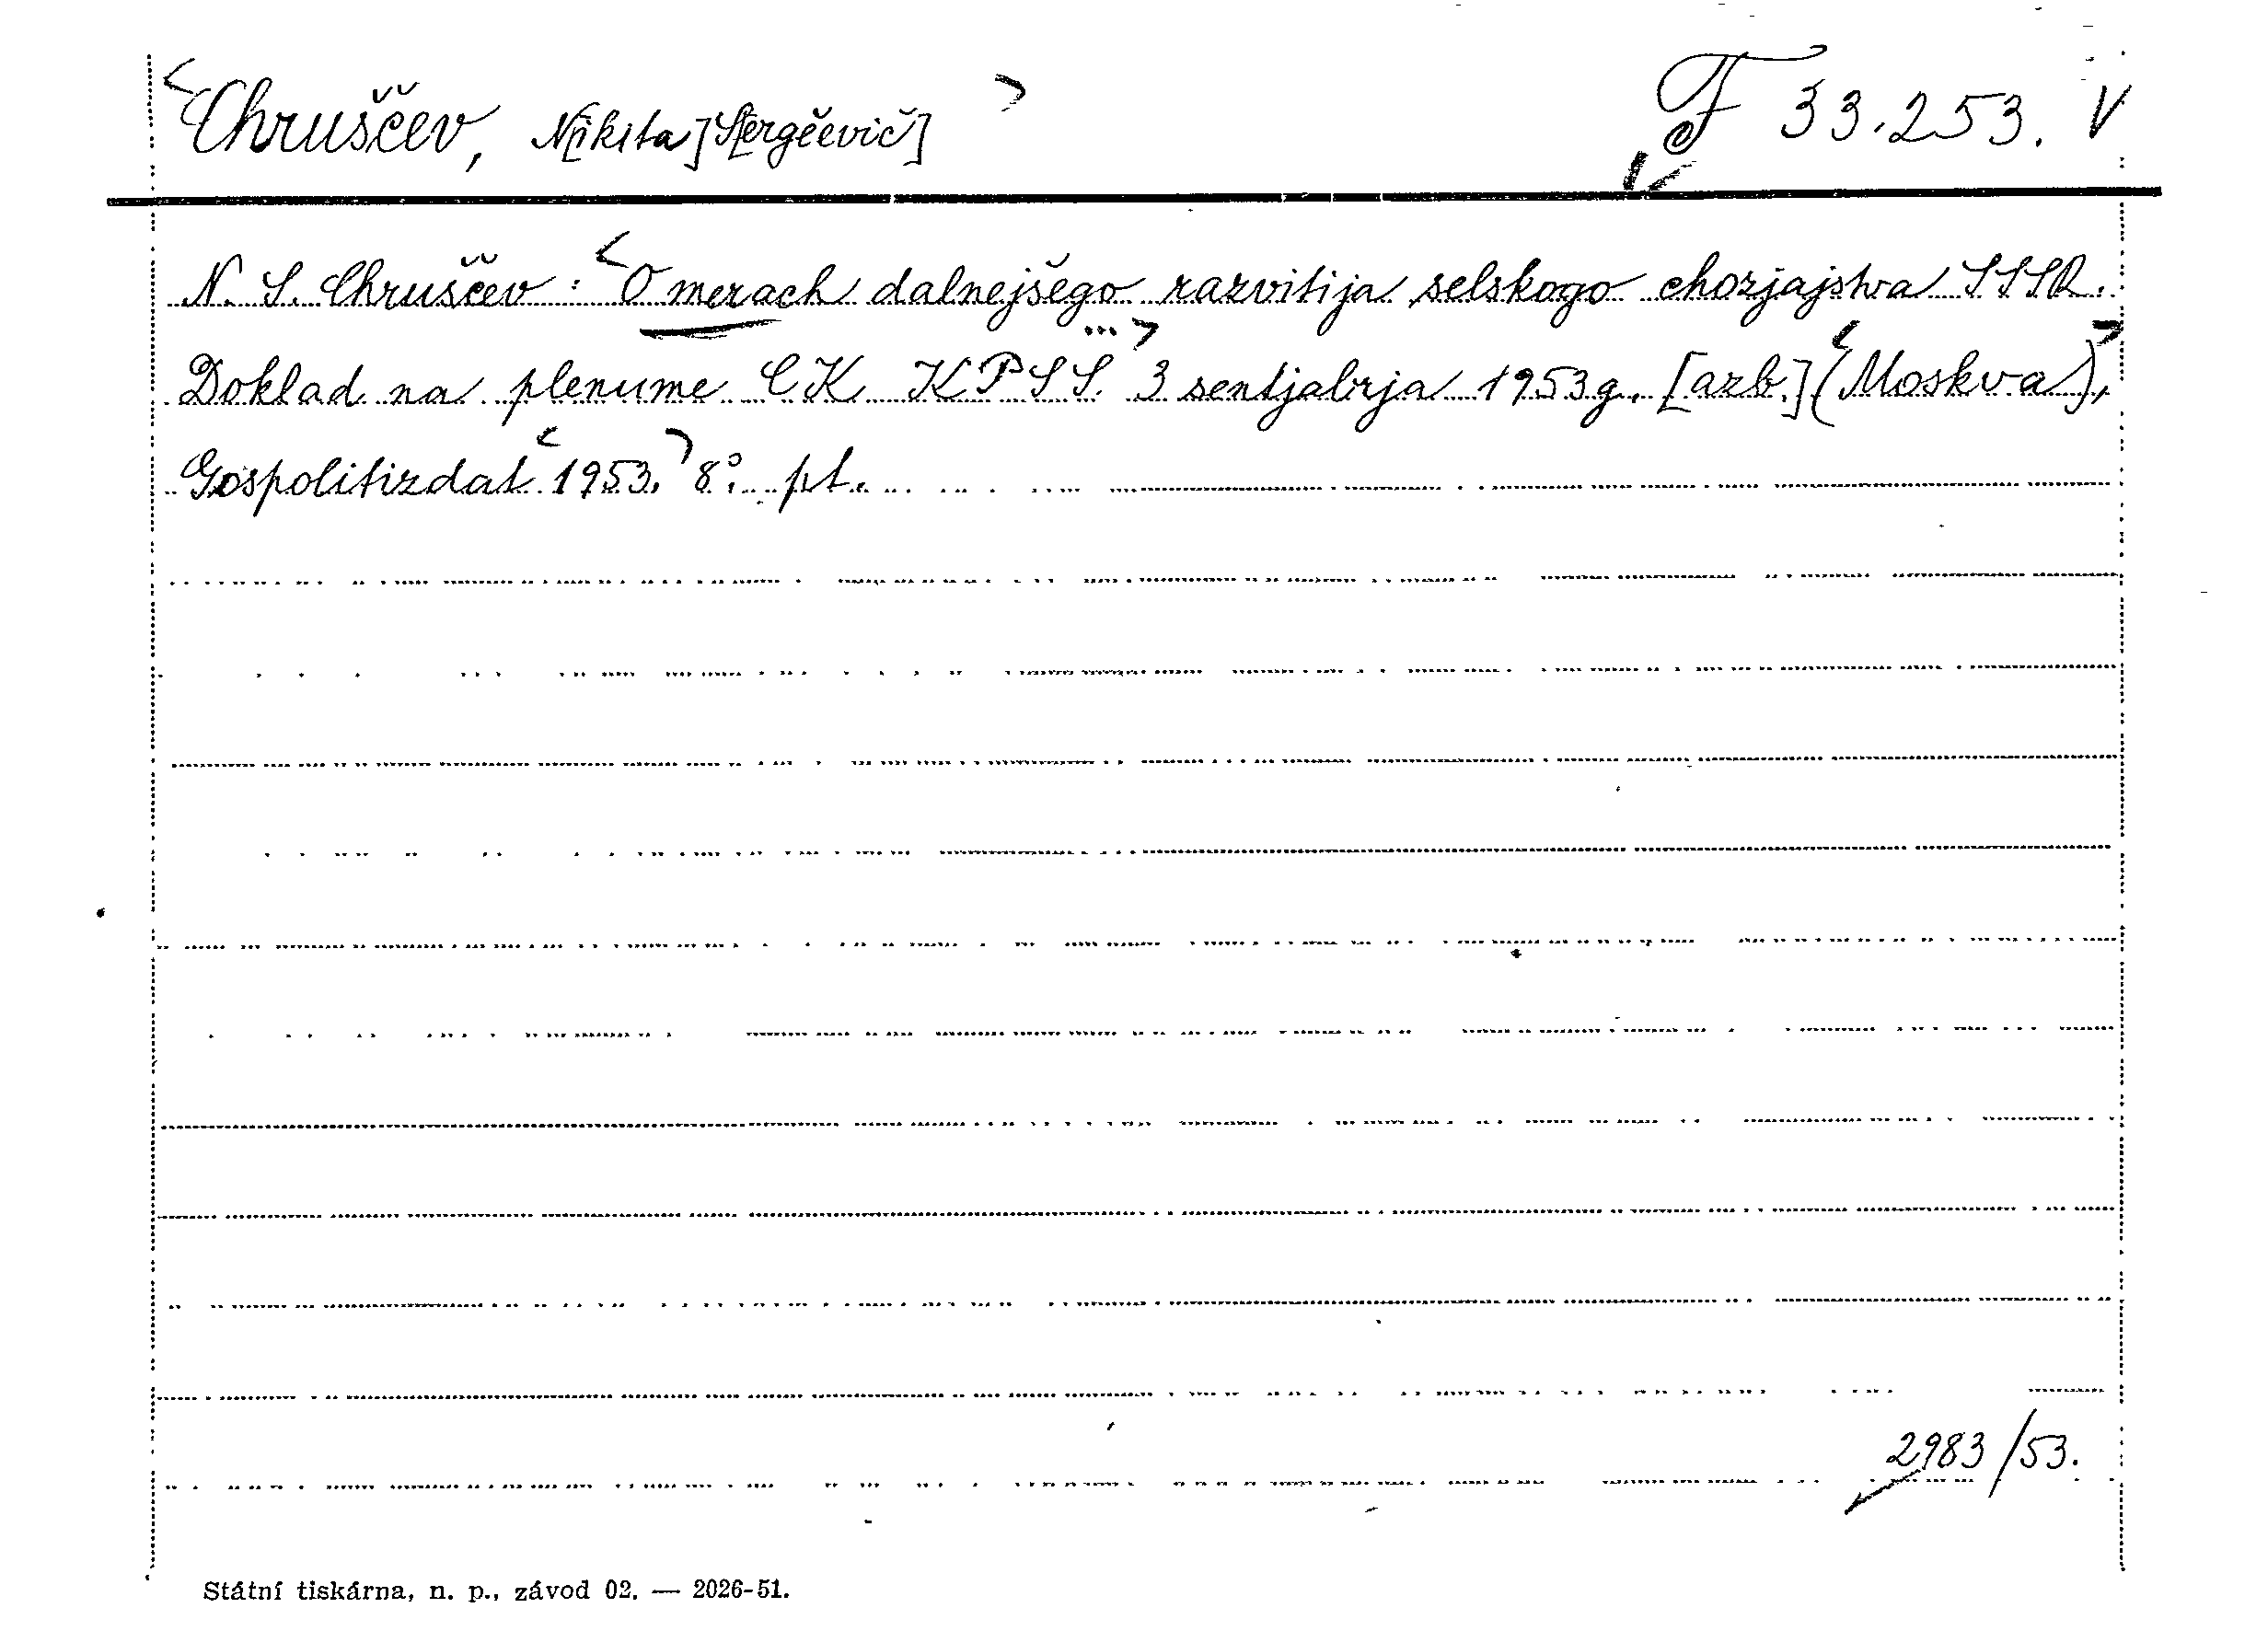 <Chruščev, N[ikita] S[ergěevič]> F 33.253. V
N. S. Chruščev: <O merach dalnejšego razvitija selskogo chozjajstva SSSR.
Doklad na plenume CK KPSS ...> 3 sentjabrja 1953 g. [azb.] <(Moskva)>,
Gospolitizdat <1953.> 8°. pt.
2983/53.
Státní tiskárna, n. p., závod 02. — 2026-51.